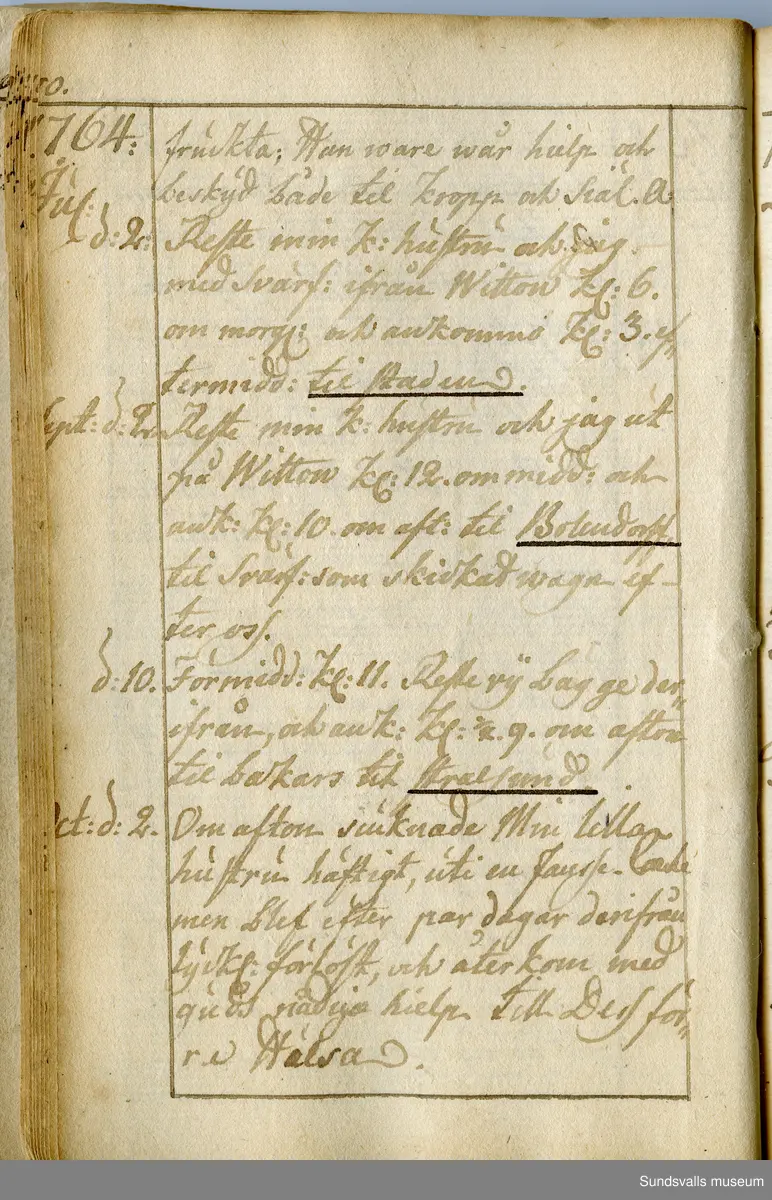 1764: frúckta; Han ware wår hielp och
Júl: beskÿd både til kropp och siäl. A
d: 2: Reste min k: hústrú och jag
med Svärf: ifrån Wittow Kl: 6.
om morg: och ankommo Kl: 3. ef,,
termidd: til staden.
Sept: d: 2. Reste min k: hústrú och jag út
på Wittow Kl: 12. om midd: och
ank: Kl: 10. om aft: til Bohndorff
til Svärf: som skickat wagn ef-
ter oss.
d: 10. Förmidd: Kl: 11. Reste vÿ bagge der,,
ifrån, och ank: Kl: ½. 9. om afton
til bakars til Stralsúnd
Oct: d: 2. Om afton siúknade Min lilla
hústrú häftigt, úti en
men blef efter par dagar derifrån
lyckl: förlöst, och återkom med
gúds nådiga hielp till Dess för,,
re Hälsa.
Sundsvalls museum